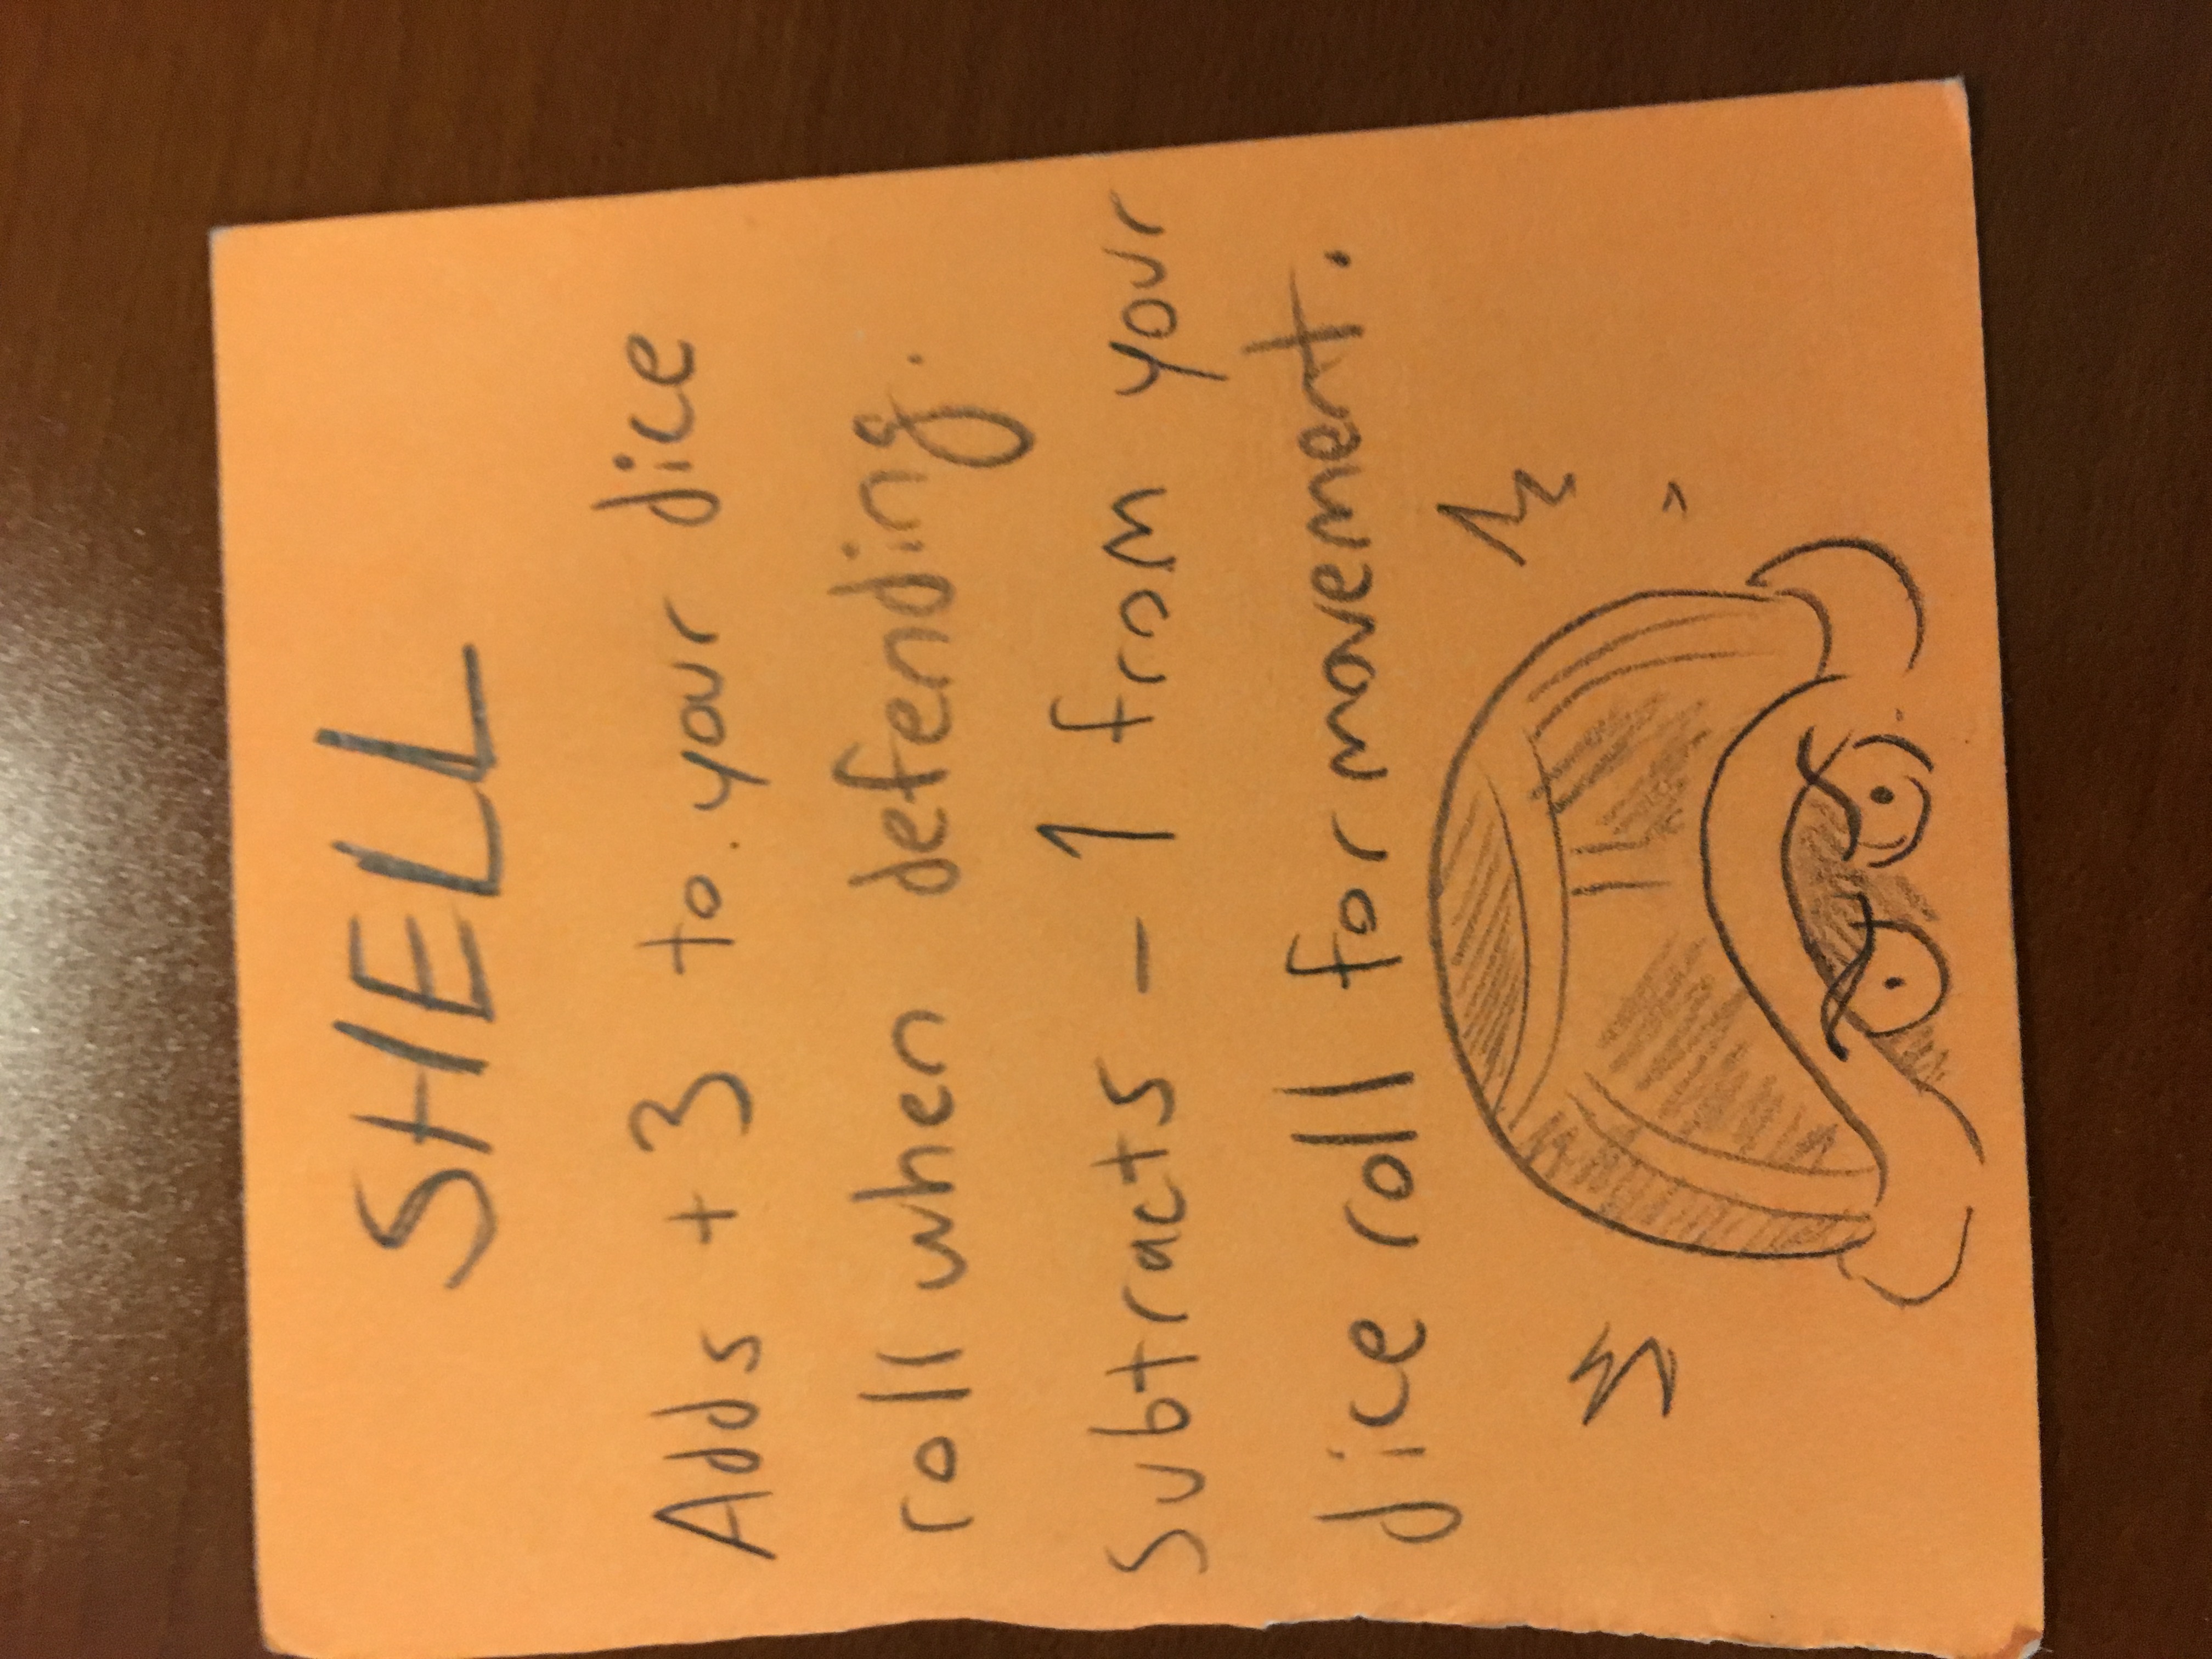 SHELL
Adds +3 to your dice
roll when defending.
Subtracts -1 from your
dice roll for movement.